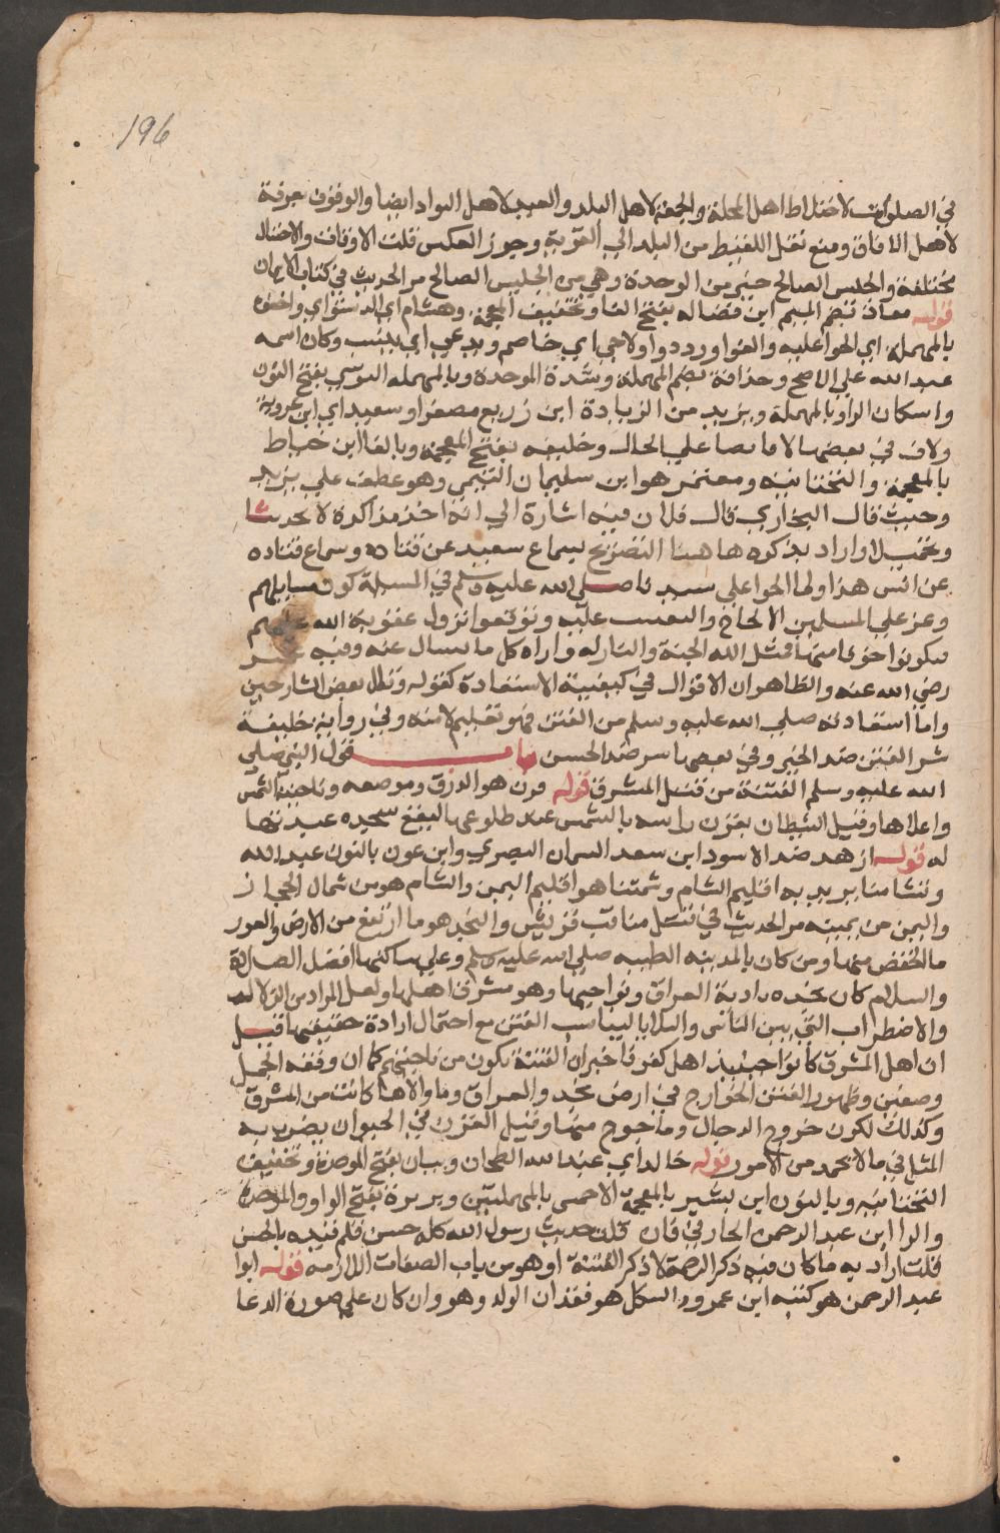 196
في الصلوات لاختلاط اهل المحلة والجمعة لاهل البلد والعيد لاهل السواد ايضا والوقوف بعرفة
لاهل الافاق ومنع نقل اللقيط من البلد الي القرية وجوز العكس قلت الاوقات والاحوال
مختلفة والجليس الصالح خير من الوحدة وهي من الجليس الصالح مر الحديث في كتاب الايمان
قوله معاذ بضم الميم ابن فضاله بفتح الفا وتخفيف المعجمة وهشام اي الدستواي واحفوه
بالمهملة اي الحوا عليه والغوا ورددوا ولاحي اي خاصم ويدعي اي ينسب وكان اسمه
عبد الله علي الاصح وحذافة بضم المهملة وشدة الموحدة وبالمهمله النرسي بفتح النون
واسكان الرا وبالمهملة ويزيد من الزيادة ابن زريع مصغرا وسعيد اي ابن عروبة
ولاف في بعضها لافا نصا علي الحال وخليفه بفتح المعجمة وبالفا ابن خياط
بالمعجمة والتحتانية ومعتمر هو ابن سليمان التيمي وهو عطف علي يزيد
وحيث قال البخاري قال فلان فيه اشارة الي انه اخذ مذاكرة لا تحديثا
وتحميلا واراد بذكره هاهنا التصريح بسماع سعيد عن قتاده وسماع قتاده
عن انس هذا ولما الحوا علي سيدنا صلي الله عليه وسلم في المسيلة كره مسايلهم
وعز علي المسلمين الالحاح والتعنت عليه وتوقعوا نزول عقوبة الله عليهم
فبكوا خوفا منها فمثل الله الجنة والنار له واراه كل ما يسال عنه وفيه عمر
رضي الله عنه والظاهر ان الاقوال في كيفية الاستعاذة كقوله وقال بعض الشارحين
واما استعاذته صلي الله عليه وسلم من الفتن فهو تعليم لامته وفي رواية خليفة
شر الفتن ضد الخير وفي بعضها سر ضد الحسن باب قول النبي صلي
الله عليه وسلم الفتنة من قبل المشرق قوله قرن هو الورق وموضعه وناحية الشمس
واعلاها وقيل الشيطان يقرن راسه بالشمس عند طلوعها ليقع سجده عبدتها
له قوله ازهد ضد الاسود ابن سعد السمان البصري وابن عون بالنون عبد الله
وشامنا يريد به اقليم الشام ويمننا هو اقليم اليمن والشام هو من شمال الحجاز
واليمن من يمينه مر الحديث في فضل مناقب قريش والنجد هو ما ارتفع من الارض والغور
ما انخفض منها ومن كان بالمدينه الطيبه صلي الله عليه وسلم وعلي ساكنها افضل الصلاة
والسلام كان نجده بادية العراق ونواحيها وهو مشرق اهلها ولعل المراد من الزلازل
والاضطراب التي بين الناس والبلايا ليناسب الفتن مع احتمال ارادة حقيقتها قيل
ان اهل المشرق كانوا حينيذ اهل كفر فاخبر ان الفتنة تكون من ناحيتهم كما ان وقعة الجمل
وصفين وظهور الفتن الخوارج في ارض نجد والعراق وما والاها كانت من المشرق
وكذلك لكون خروج الدجال وماجوج منها وقيل القرن في الحيوان يضرب به
المثل في ما لا يحمد من الامور قوله خالد اي عبد الله الطحان وبيان بفتح الموحدة وتخفيف
التحتانيه وبالنون ابن بشير بالمعجمة الاحمسي بالمهملتين وبربرة بفتح الواو والموحدة
والرا ابن عبد الرحمن الحارفي فان قلت حديث رسول الله كله حسن فلم قيده بالحسن
قلت اراد به ما كان فيه ذكر الرحمة لا ذكر الفتنة او هو من باب الصفات اللازمة قوله ابوا
عبد الرحمن هو كنيه ابن عمر والثكل هو فقدان الولد وهو وان كان علي صورة الدعا